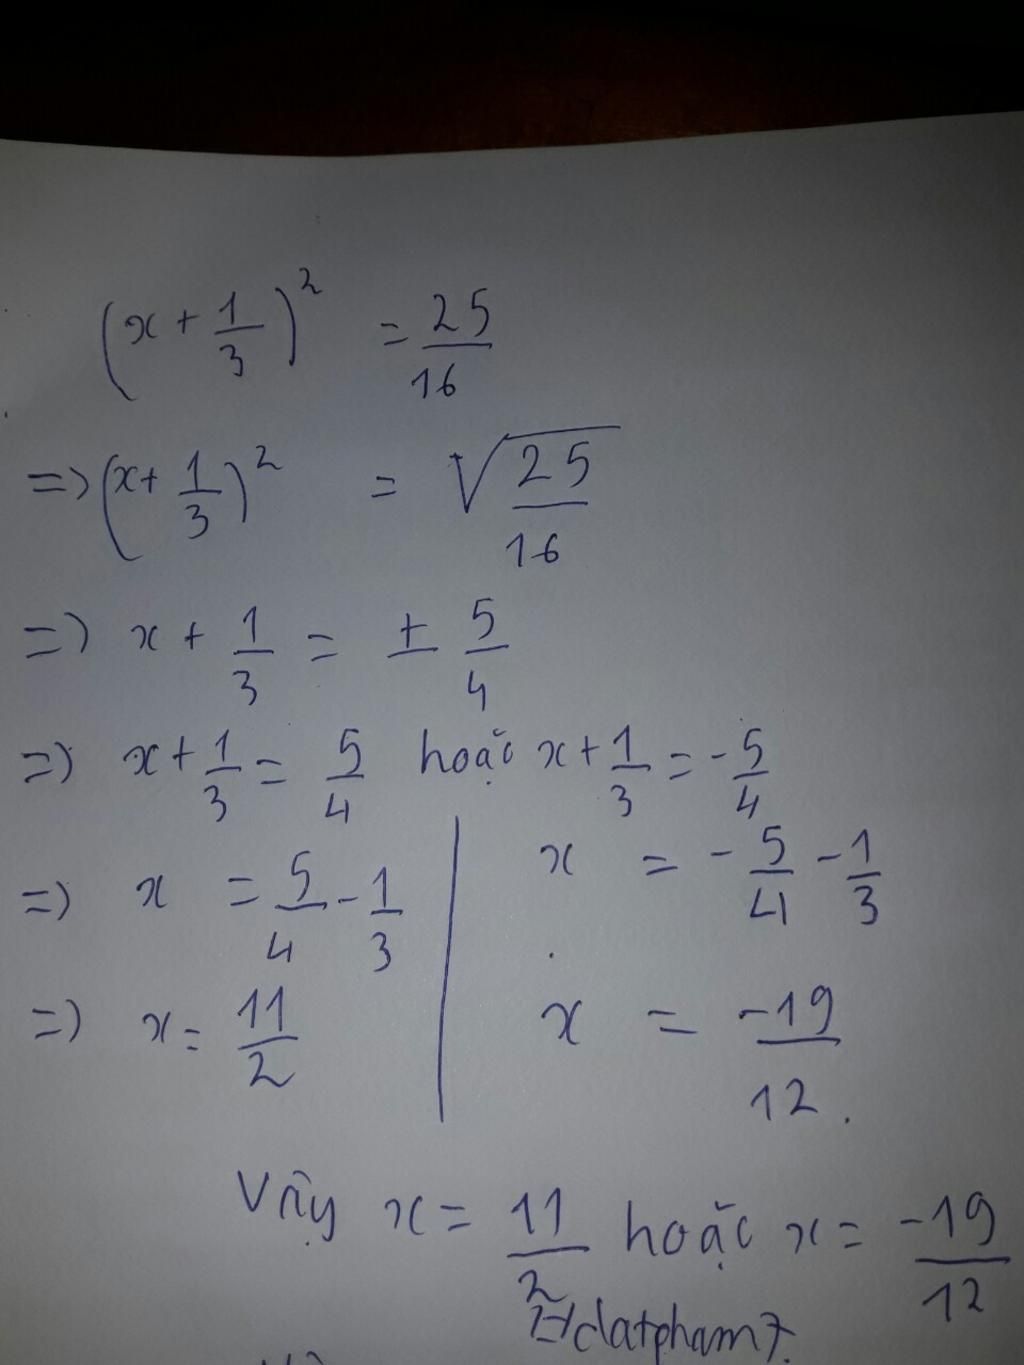 (x + 1/3)² = 25/16
=> (x + 1/3)² = √25/16
=> x + 1/3 = ± 5/4
=> x + 1/3 = 5/4 hoặc x + 1/3 = -5/4
=> x = 5/4 - 1/3 | x = -5/4 - 1/3
=> x = 11/2 | x = -19/12.
Vậy x = 11/2 hoặc x = -19/12